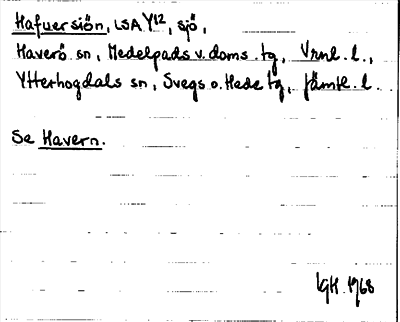 Hafuersiön, LSA Y12, sjö,
Haverö sn, Medelpads v. doms. tg, Vrnl. l.,
Ytterhogdals sn, Svegs o. Hede tg, Jämtl. l.
Se Havern.
LgH. 1968